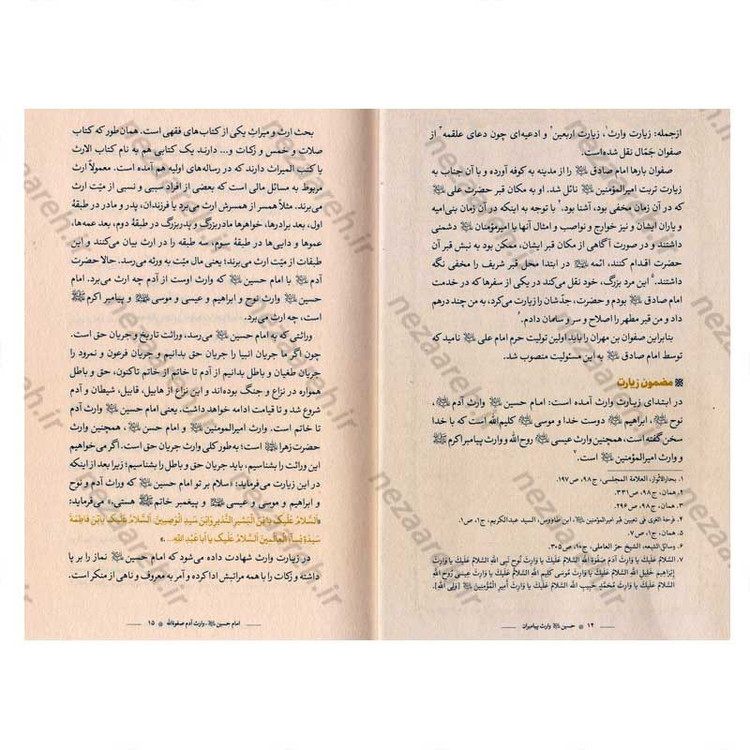 ازجمله: زیارت وارث۱، زیارت اربعین۲ و ادعیه‌ای چون دعای علقمه۳ از
صفوان جَمّال نقل شده‌است.
صفوان بارها امام صادق ﷺ را از مدینه به کوفه آورده و با آن جناب به
زیارت تربت امیرالمؤمنین نائل شد. او به مکان قبر حضرت علی
که در آن زمان مخفی بود، آشنا بود.۴ با توجه به اینکه در آن زمان بنی‌امیه
و یاران ایشان و نیز خوارج و نواصب و امثال آنها با امیرمؤمنان دشمنی
داشتند و در صورت آگاهی از مکان قبر ایشان، ممکن بود به نبش قبر آن
حضرت اقدام کنند، ائمه در ابتدا محل قبر شریف را مخفی نگه
داشتند.۵ این مرد بزرگ، خود نقل می‌کند در یکی از سفرها که در خدمت
امام صادق بودم و حضرت، جدّشان را زیارت می‌کرد، به من چند درهم
داد و من قبر مطهر را اصلاح و سر و سامان دادم.۶
بنابراین صفوان بن مهران را باید اولین تولیت حرم امام علی نامید که
توسط امام صادق به این مسئولیت منصوب شد.
مضمون زیارت
در ابتدای زیارت وارث آمده است: امام حسین وارث آدم،
نوح، ابراهیم دوست خدا و موسی کلیم‌الله است که با خدا
سخن گفته است، همچنین وارث عیسی روح‌الله و وارث پیامبر اکرم
و وارث امیرالمؤمنین است.۷
۱. بحارالأنوار، العلامة المجلسی، ج۹۸، ص۱۹۷.
۲. همان، ج۹۸، ص۳۳۱.
۳. همان، ج۹۸، ص۲۹۶.
۴. فرحة الغری فی تعیین قبر امیرالمؤمنین، ابن طاووس، السید عبدالکریم، ج۱، ص۱.
۵. همان، ج۱، ص۷.
۶. وسائل الشیعه، الشیخ حرّ العاملی، ج۱۰، ص۳۰۵.
۷. السَّلامُ عَلَیْکَ یا وارِثَ آدَمَ صَفْوَةِ اللهِ السَّلامُ عَلَیْکَ یا وارِثَ نُوحٍ نَبِیِّ اللهِ السَّلامُ عَلَیْکَ یا وارِثَ
إِبْراهِیمَ خَلِیلِ اللهِ السَّلامُ عَلَیْکَ یا وارِثَ مُوسى کَلِیمِ اللهِ السَّلامُ عَلَیْکَ یا وارِثَ عِیسى رُوحِ اللهِ
السَّلامُ عَلَیْکَ یا وارِثَ مُحَمَّدٍ حَبِیبِ اللهِ السَّلامُ عَلَیْکَ یا وارِثَ أَمِیرِ الْمُؤْمِنِینَ [وَلِیِّ اللهِ].
۱۴ حسین وارث پیامبران
بحث ارث و میراث یکی از کتاب‌های فقهی است. همان‌طور که کتاب
صلات و خمس و زکات و... دارند یک کتابی هم به نام کتاب الارث
یا کتب المیراث دارند که در رساله‌های اولیه هم آمده است. معمولاً ارث
مربوط به مسائل مالی است که بعضی از افراد سببی و نسبی از میّت ارث
می‌برند. مثلاً همسر از همسرش ارث می‌برد یا فرزندان، پدر و مادر در طبقهٔ
اول، بعد برادرها، خواهرها مادربزرگ و پدربزرگ در طبقهٔ دوم، بعد عمه‌ها،
عموها و دایی‌ها در طبقهٔ سوم. سه طبقه را در ارث بیان می‌کنند و این
طبقات از میّت ارث می‌برند؛ یعنی مال میّت به ورثه می‌رسد. حالا حضرت
آدم با امام حسین که وارث اوست از آدم چه ارث می‌برد. امام
حسین وارث نوح و ابراهیم و عیسی و موسی و پیامبر اکرم
است، چه ارث می‌برد.
وراثتی که به امام حسین می‌رسد، وراثت تاریخ و جریان حق است.
چون اگر ما جریان انبیا را جریان حق بدانیم و جریان فرعون و نمرود را
جریان طغیان و باطل بدانیم از آدم تا خاتم از خاتم تاکنون، حق و باطل
همواره در نزاع و جنگ بوده‌اند و این نزاع از هابیل، قابیل، شیطان و آدم
شروع شد و تا قیامت ادامه خواهد داشت، یعنی امام حسین وارث آدم
تا خاتم است. وارث امیرالمومنین و امام حسن، همچنین وارث
حضرت زهرا است؛ به‌طور کلی وارث جریان حق است. اگر می‌خواهیم
این وراثت را بشناسیم، باید جریان حق و باطل را بشناسیم؛ زیرا بعد از اینکه
در این زیارت می‌فرماید: «سلام بر تو امام حسین که وراث آدم و نوح
و ابراهیم و موسی و عیسی و پیغمبر خاتم هستی.» می‌فرماید:
«السَّلامُ عَلَیْکَ یا ابْنَ الْبَشِیرِ النَّذِیرِ وَابْنَ سَیِّدِ الْوَصِیِّینَ السَّلامُ عَلَیْکَ یا ابْنَ فاطِمَةَ
سَیِّدَةِ نِساءِ الْعالَمِینَ السَّلامُ عَلَیْکَ یا أَبا عَبْدِ اللهِ...»
در زیارت وارث شهادت داده می‌شود که امام حسین نماز را بر پا
داشته و زکات را با همه مراتبش ادا کرده و آمر به معروف و ناهی از منکر است.
امام حسین، وارث آدم صفوةالله ۱۵
nezaareh.ir